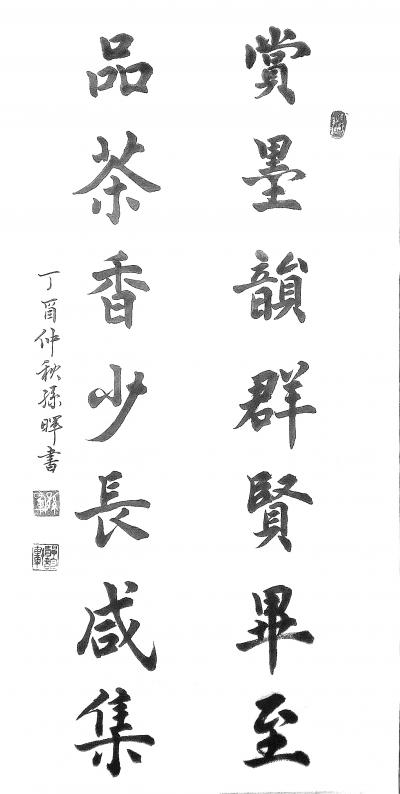 賞墨韻群賢畢至
品茶香少長咸集
丁酉仲秋孫暉書